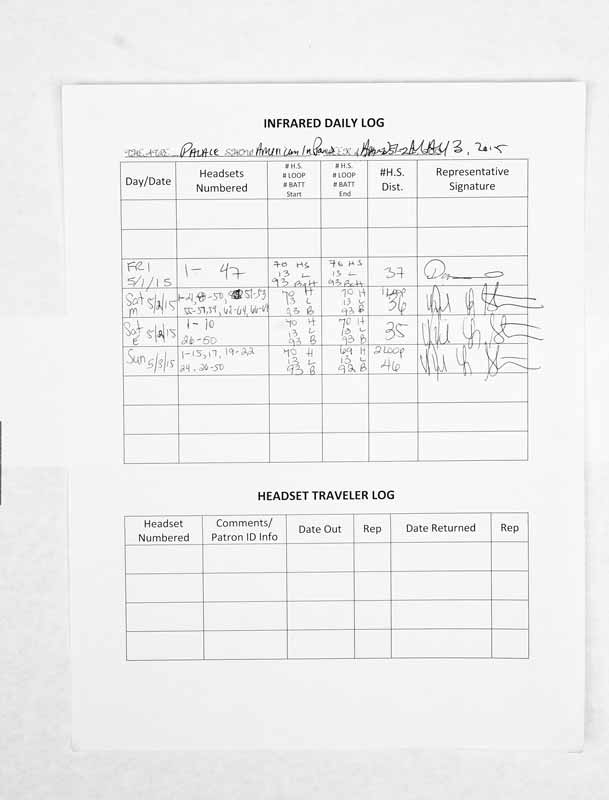 INFRARED DAILY LOG
THEATRE PALACE SHOW American In Paris MAY 3, 2015
Day/Date
Headsets Numbered
# H.S. # LOOP # BATT Start
# H.S. # LOOP # BATT End
#H.S. Dist.
Representative Signature
FRI 5/1/15
1- 47
70 HS
13 L
93 Batt
76 HS
13 L
93 Batt
37
Sat 5/2/15 M
70 H
13 L
93 B
70 H
13 L
93 B
1 Loop
36
Sat 5/2/15 E
1-10
26-50
70 H
13 L
93 B
70 H
13 L
93 B
35
Sun 5/3/15
1-15, 17, 19-22
24, 26-50
70 H
13 L
93 B
69 H
13 L
92 B
2 Loop
46
HEADSET TRAVELER LOG
Headset Numbered
Comments/ Patron ID Info
Date Out
Rep
Date Returned
Rep